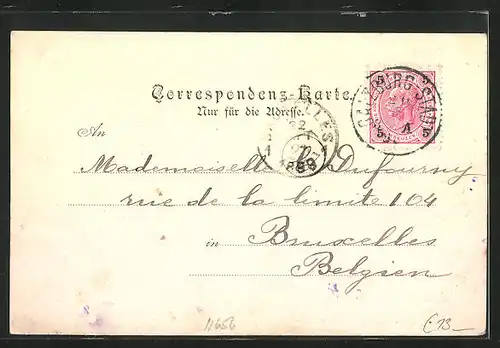 Correspondenz-Karte.
Nur für die Adresse.
SALZBURG STADT
5 5
An
1898
Mademoiselle L. Dufourny
rue de la limite 104
in Bruxelles
Belgien
11456
€13-